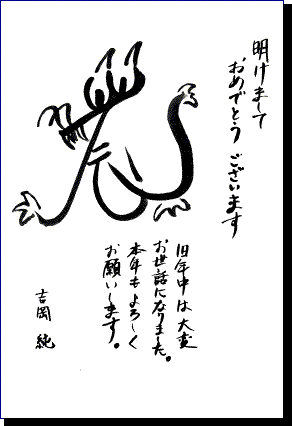 明けまして
おめでとうございます
辰
旧年中は大変
お世話になりました。
本年もよろしく
お願いします。
吉岡 純